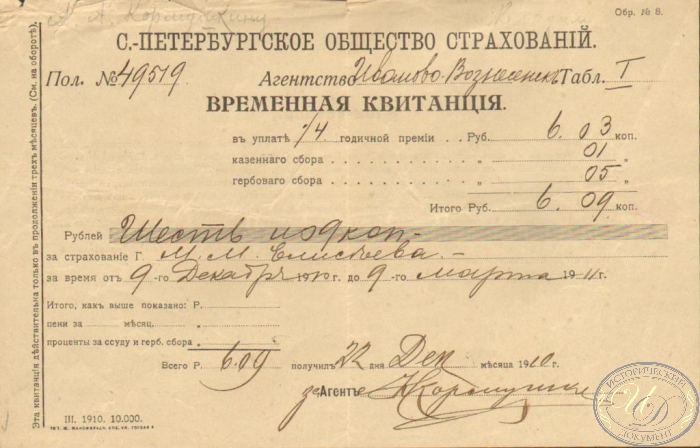 Обр. № 8.
С.-ПЕТЕРБУРГСКОЕ ОБЩЕСТВО СТРАХОВАНІЙ.
Пол. № 49519 Агентство Иваново-Вознесенск Табл. I
ВРЕМЕННАЯ КВИТАНЦІЯ.
въ уплатѣ 1/4 годичной преміи Руб. 6. 03 коп.
казеннаго сбора „ 01 „
гербоваго сбора „ 05 „
Итого Руб. 6. 09 коп.
Рублей Шесть и 09 коп-
за страхованіе Г. М. М. Елисѣева. -
за время отъ 9-го Декабря 1910 до 9-го марта 1911 г.
Итого, какъ выше показано: Р.
цени за мѣсяц. „
проценты за ссуду и герб. сбора „
Всего Р. 6.09 получилъ 22 дня Дек мѣсяца 1910 г.
за Агентъ
III. 1910. 10.000.
Эта квитанція дѣйствительна только въ продолженіи трехъ мѣсяцевъ. (См. на оборотѣ).
ИСТОРИЧЕСКИЙ
ИД
ДОКУМЕНТ